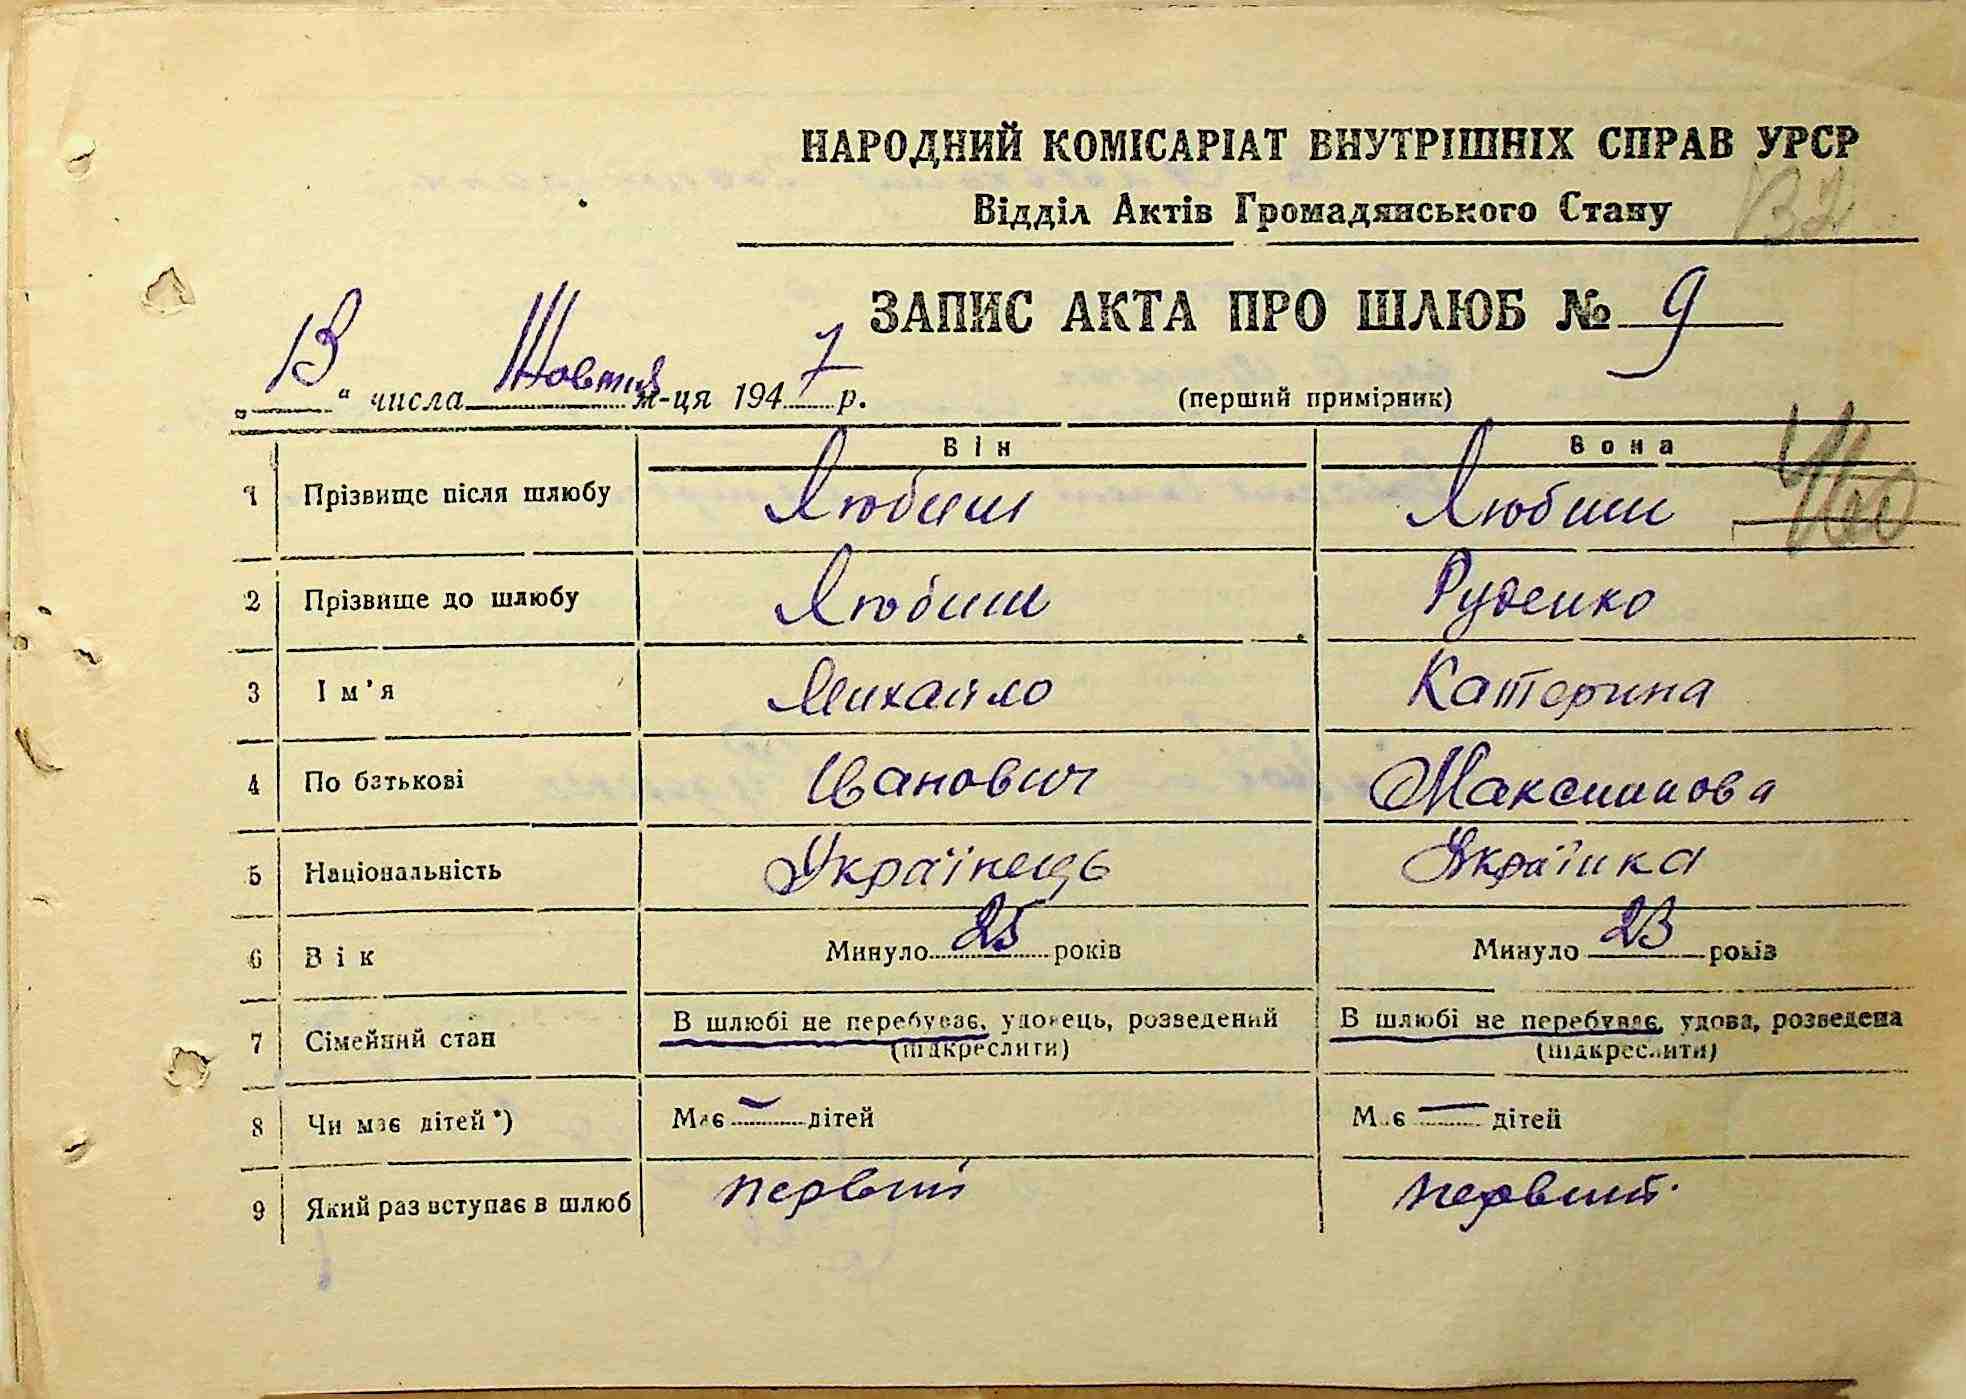 НАРОДНИЙ КОМІСАРІАТ ВНУТРІШНІХ СПРАВ УРСР
Відділ Актів Громадянського Стану
132
ЗАПИС АКТА ПРО ШЛЮБ № 9
„13“ числа Жовтня м-ця 1947 р. (перший примірник)
Він Вона
1 Прізвище після шлюбу Любиш Любиш
2 Прізвище до шлюбу Любиш Руденко
3 Ім'я Михайло Катерина
4 По батькові Іванович Максимова
5 Національність Українець Українка
6 Вік Минуло 25 років Минуло 23 років
7 Сімейний стан В шлюбі не перебуває, удовець, розведений В шлюбі не перебуває, удова, розведена
(підкреслити) (підкреслити)
8 Чи має дітей*) Має — дітей Має — дітей
9 Який раз вступає в шлюб первий первий